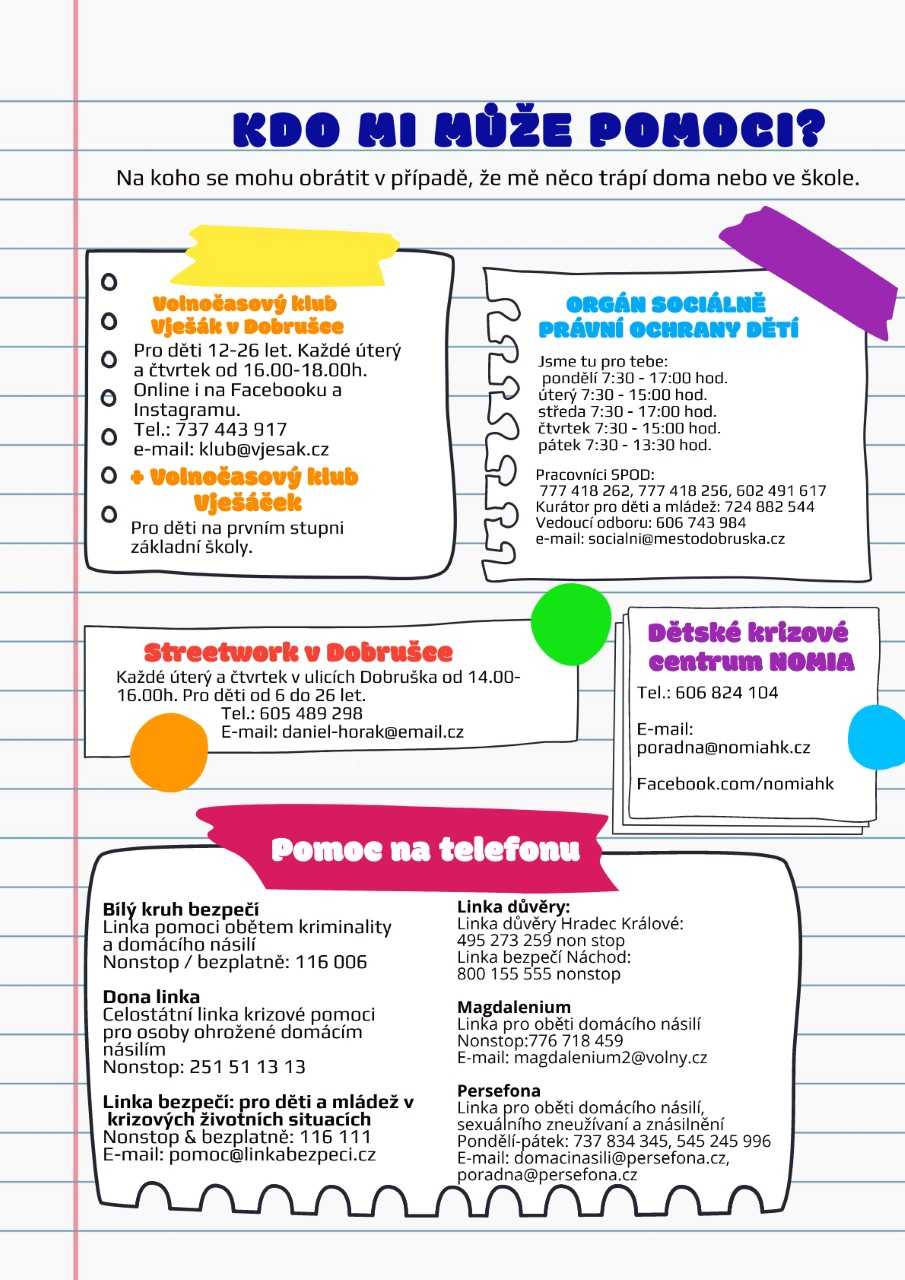 KDO MI MŮŽE POMOCI?
Na koho se mohu obrátit v případě, že mě něco trápí doma nebo ve škole.
Volnočasový klub
Vješák v Dobrušce
Pro děti 12-26 let. Každé úterý
a čtvrtek od 16.00-18.00h.
Online i na Facebooku a
Instagramu.
Tel.: 737 443 917
e-mail: klub@vjesak.cz
+ Volnočasový klub
Vješáček
Pro děti na prvním stupni
základní školy.
ORGÁN SOCIÁLNĚ
PRÁVNÍ OCHRANY DĚTÍ
Jsme tu pro tebe:
pondělí 7:30 - 17:00 hod.
úterý 7:30 - 15:00 hod.
středa 7:30 - 17:00 hod.
čtvrtek 7:30 - 15:00 hod.
pátek 7:30 - 13:30 hod.
Pracovníci SPOD:
777 418 262, 777 418 256, 602 491 617
Kurátor pro děti a mládež: 724 882 544
Vedoucí odboru: 606 743 984
e-mail: socialni@mestodobruska.cz
Streetwork v Dobrušce
Každé úterý a čtvrtek v ulicích Dobruška od 14.00-
16.00h. Pro děti od 6 do 26 let.
Tel.: 605 489 298
E-mail: daniel-horak@email.cz
Dětské krizové
centrum NOMIA
Tel.: 606 824 104
E-mail:
poradna@nomiahk.cz
Facebook.com/nomiahk
Pomoc na telefonu
Bílý kruh bezpečí
Linka pomoci obětem kriminality
a domácího násilí
Nonstop / bezplatně: 116 006
Dona linka
Celostátní linka krizové pomoci
pro osoby ohrožené domácím
násilím
Nonstop: 251 51 13 13
Linka bezpečí: pro děti a mládež v
krizových životních situacích
Nonstop & bezplatně: 116 111
E-mail: pomoc@linkabezpeci.cz
Linka důvěry:
Linka důvěry Hradec Králové:
495 273 259 non stop
Linka bezpečí Náchod:
800 155 555 nonstop
Magdalenium
Linka pro oběti domácího násilí
Nonstop:776 718 459
E-mail: magdalenium2@volny.cz
Persefona
Linka pro oběti domácího násilí,
sexuálního zneužívaní a znásilnění
Pondělí-pátek: 737 834 345, 545 245 996
E-mail: domacinasili@persefona.cz,
poradna@persefona.cz